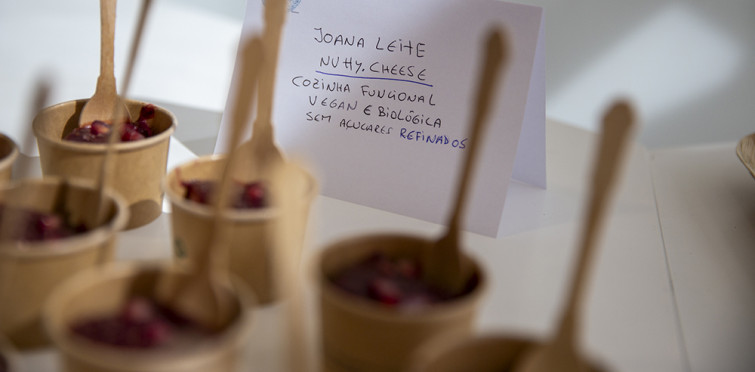 JOANA LEITE
NUTTY.CHEESE
COZINHA FUNCIONAL
VEGAN E BIOLÓGICA
SEM AÇUCARES REFINADOS